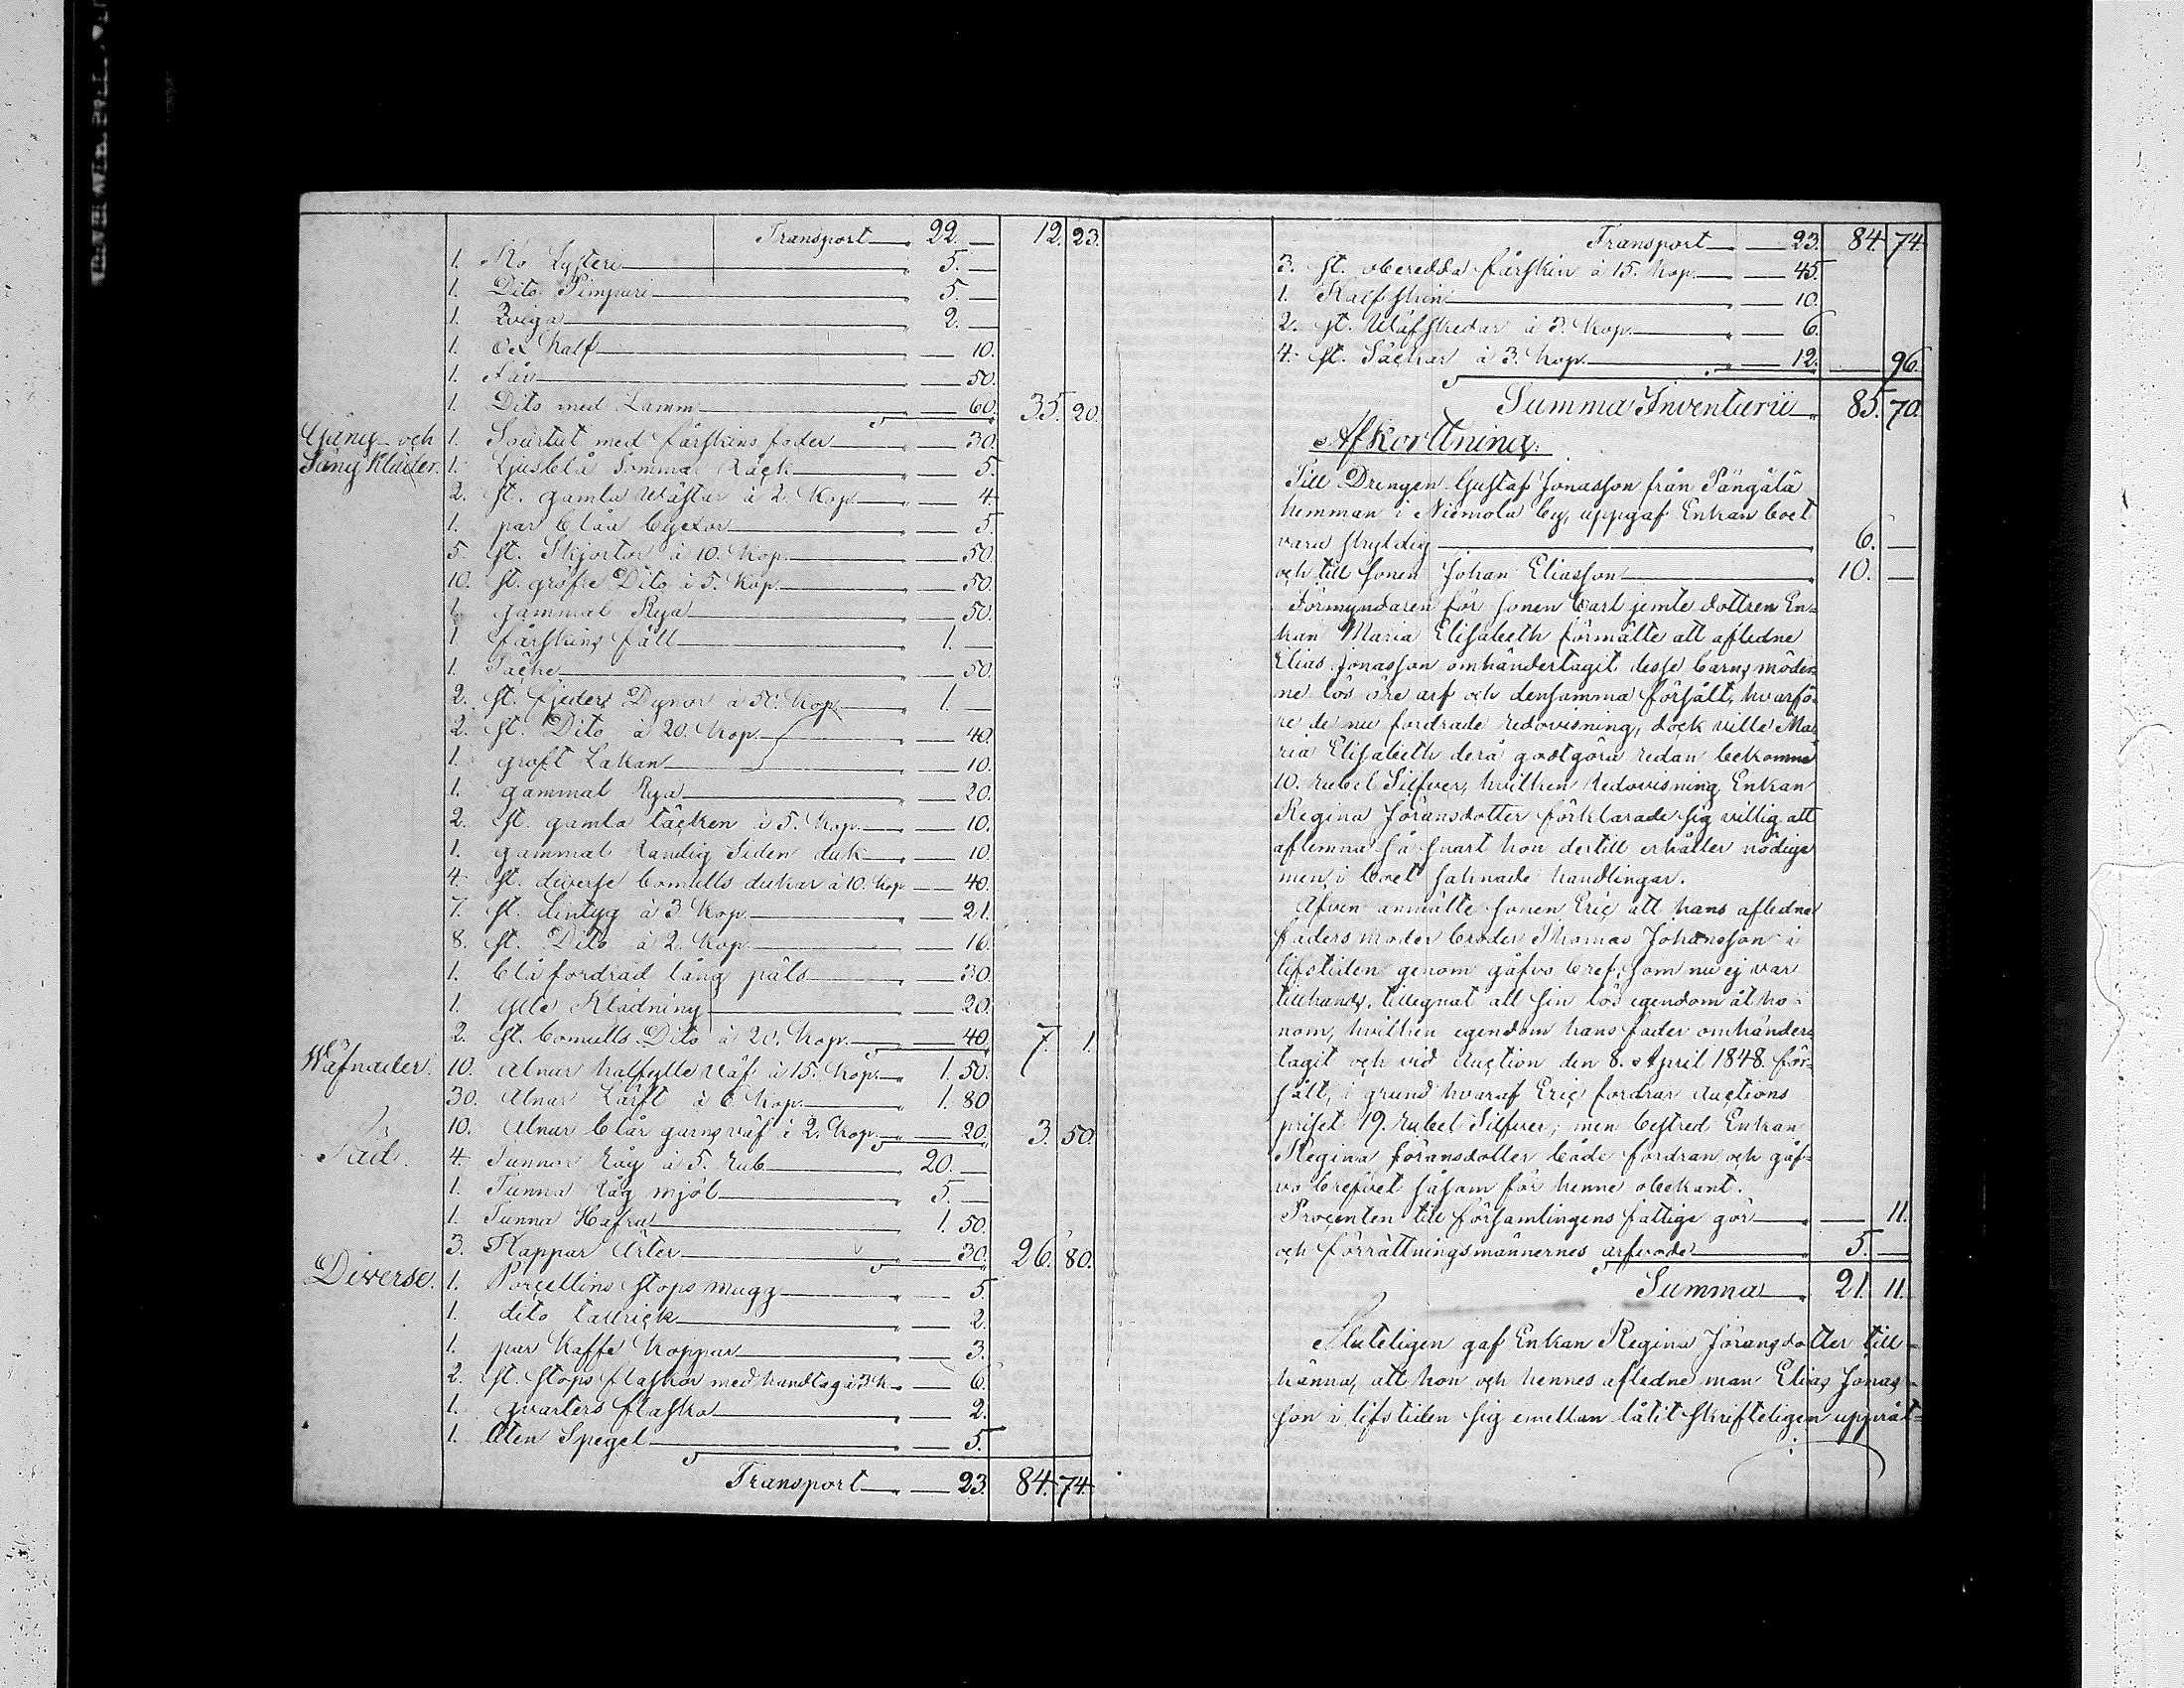 Transport 22. — 12. 23.
1. Ko Lysteri 5. —
1. Dito Pimpari 5. —
1. Qviga 2. —
1. Ox Kalf — 10.
1. Får — 50.
1. Dito med Lamm — 60. 35. 20.
Gång- och 1. Sourtut med fårskins foder — 30.
Säng kläder. 1. Ljusblå Sommar Råck — 5.
2. st. gamla Wästar à 2. Kop. — 4.
1. par blåa byxor — 5.
5. st. Skjortor à 10. Kop. — 50.
10. st. gröfre Dito à 5. Kop. — 50.
1. gammal Rya — 50.
1. fårskins fäll 1. —
1. Täcke — 50.
2. st. fjeders Dynor à 50. Kop. 1. —
2. st. Dito à 20. Kop. — 40.
1. groft Lakan — 10.
1. gammal Rya — 20.
2. st. gamla täcken à 5. Kop. — 10.
1. gammal randig Siden duk — 10.
4. st. diverse bomulls dukar à 10. Kop. — 40.
7. st. Lintyg à 3 Kop. — 21.
8. st. Dito à 2. Kop. — 16.
1. blå fordrad lång päls — 30.
1. ylle Klädning — 20.
2. st. bomulls Dito à 20. Kop. — 40. 7. 1.
Wäfnader. 10. Alnar halfylle väf à 15. Kop. 1. 50.
30. Alnar Lärft à 6 Kop. 1. 80
10. Alnar blår garns väf à 2. Kop. — 20. 3. 50.
Säd. 4. Tunnor Råg à 5. Rub. 20. —
1. Tunna råg mjöl 5. —
1. Tunna Hafra 1. 50.
3. Kappar Ärter — 30. 26. 80.
Diverse. 1. Porcellins stops mugg — 5.
1. dito tallrick — 2.
1. par Kaffe Koppar — 3.
2. st. stops flaskor med handtag à 3 k. — 6.
1. qvarters flaska — 2.
1. liten Spegel — 5.
Transport — 23. 84. 74.
Transport — 23. 84. 74.
3. st. oberedda fårskin à 15. Kop. — 45.
1. Kalfskin — 10.
2. st. Wäfskedar à 3. Kop. — 6.
4. st. Säckar à 3. Kop. — 12. — 96.
Summa Inventarii 85. 70.
Afkortning.
Till Drengen Gustaf Jonasson från Pängälä
hemman i Niemola by, uppgaf Enkan boet
vara skyldig 6. —
och till sonen Johan Eliasson 10. —
Förmyndaren för sonen Carl jemte dottren En-
kan Maria Elisabeth förmälte att aflidne
Elias Jonasson omhändertagit desse barns möder-
ne lös öre arf och densamma försålt, hvarfö-
re de nu fordrade redovisning, dock ville Ma-
ria Elisabeth derå godtgöra redan bekomme
10. rubel Silfver, hvilken Redovisning Enkan
Regina Jöransdotter förklarade sig villig att
aflemna så snart hon dertill erhåller nödige
men i boet saknade handlingar.
Äfven anmälte sonen Eric att hans aflidne
faders moder broder Thomas Johansson i
lifstiden genom gåfvo bref, som nu ej var
tillhands, tillegnat all sin lös egendom åt ho-
nom, hvilken egendom hans fader omhänder-
tagit och vid Auction den 8. April 1848 för-
sålt, i grund hvaraf Eric fordrar auctions
priset 19. rubel Silfver; men bestred Enkan
Regina Jöransdotter både fordran och gåf-
vo brefvet såsom för henne obekant.
Procenten till församlingens fattige gör — 11.
och förrättningsmännernes arfvode 5. —
Summa 21. 11.
Sluteligen gaf Enkan Regina Jöransdotter till-
känna, att hon och hennes aflidne man Elias Jonas-
son i lifstiden sig emellan låtit skrifteligen upprät-